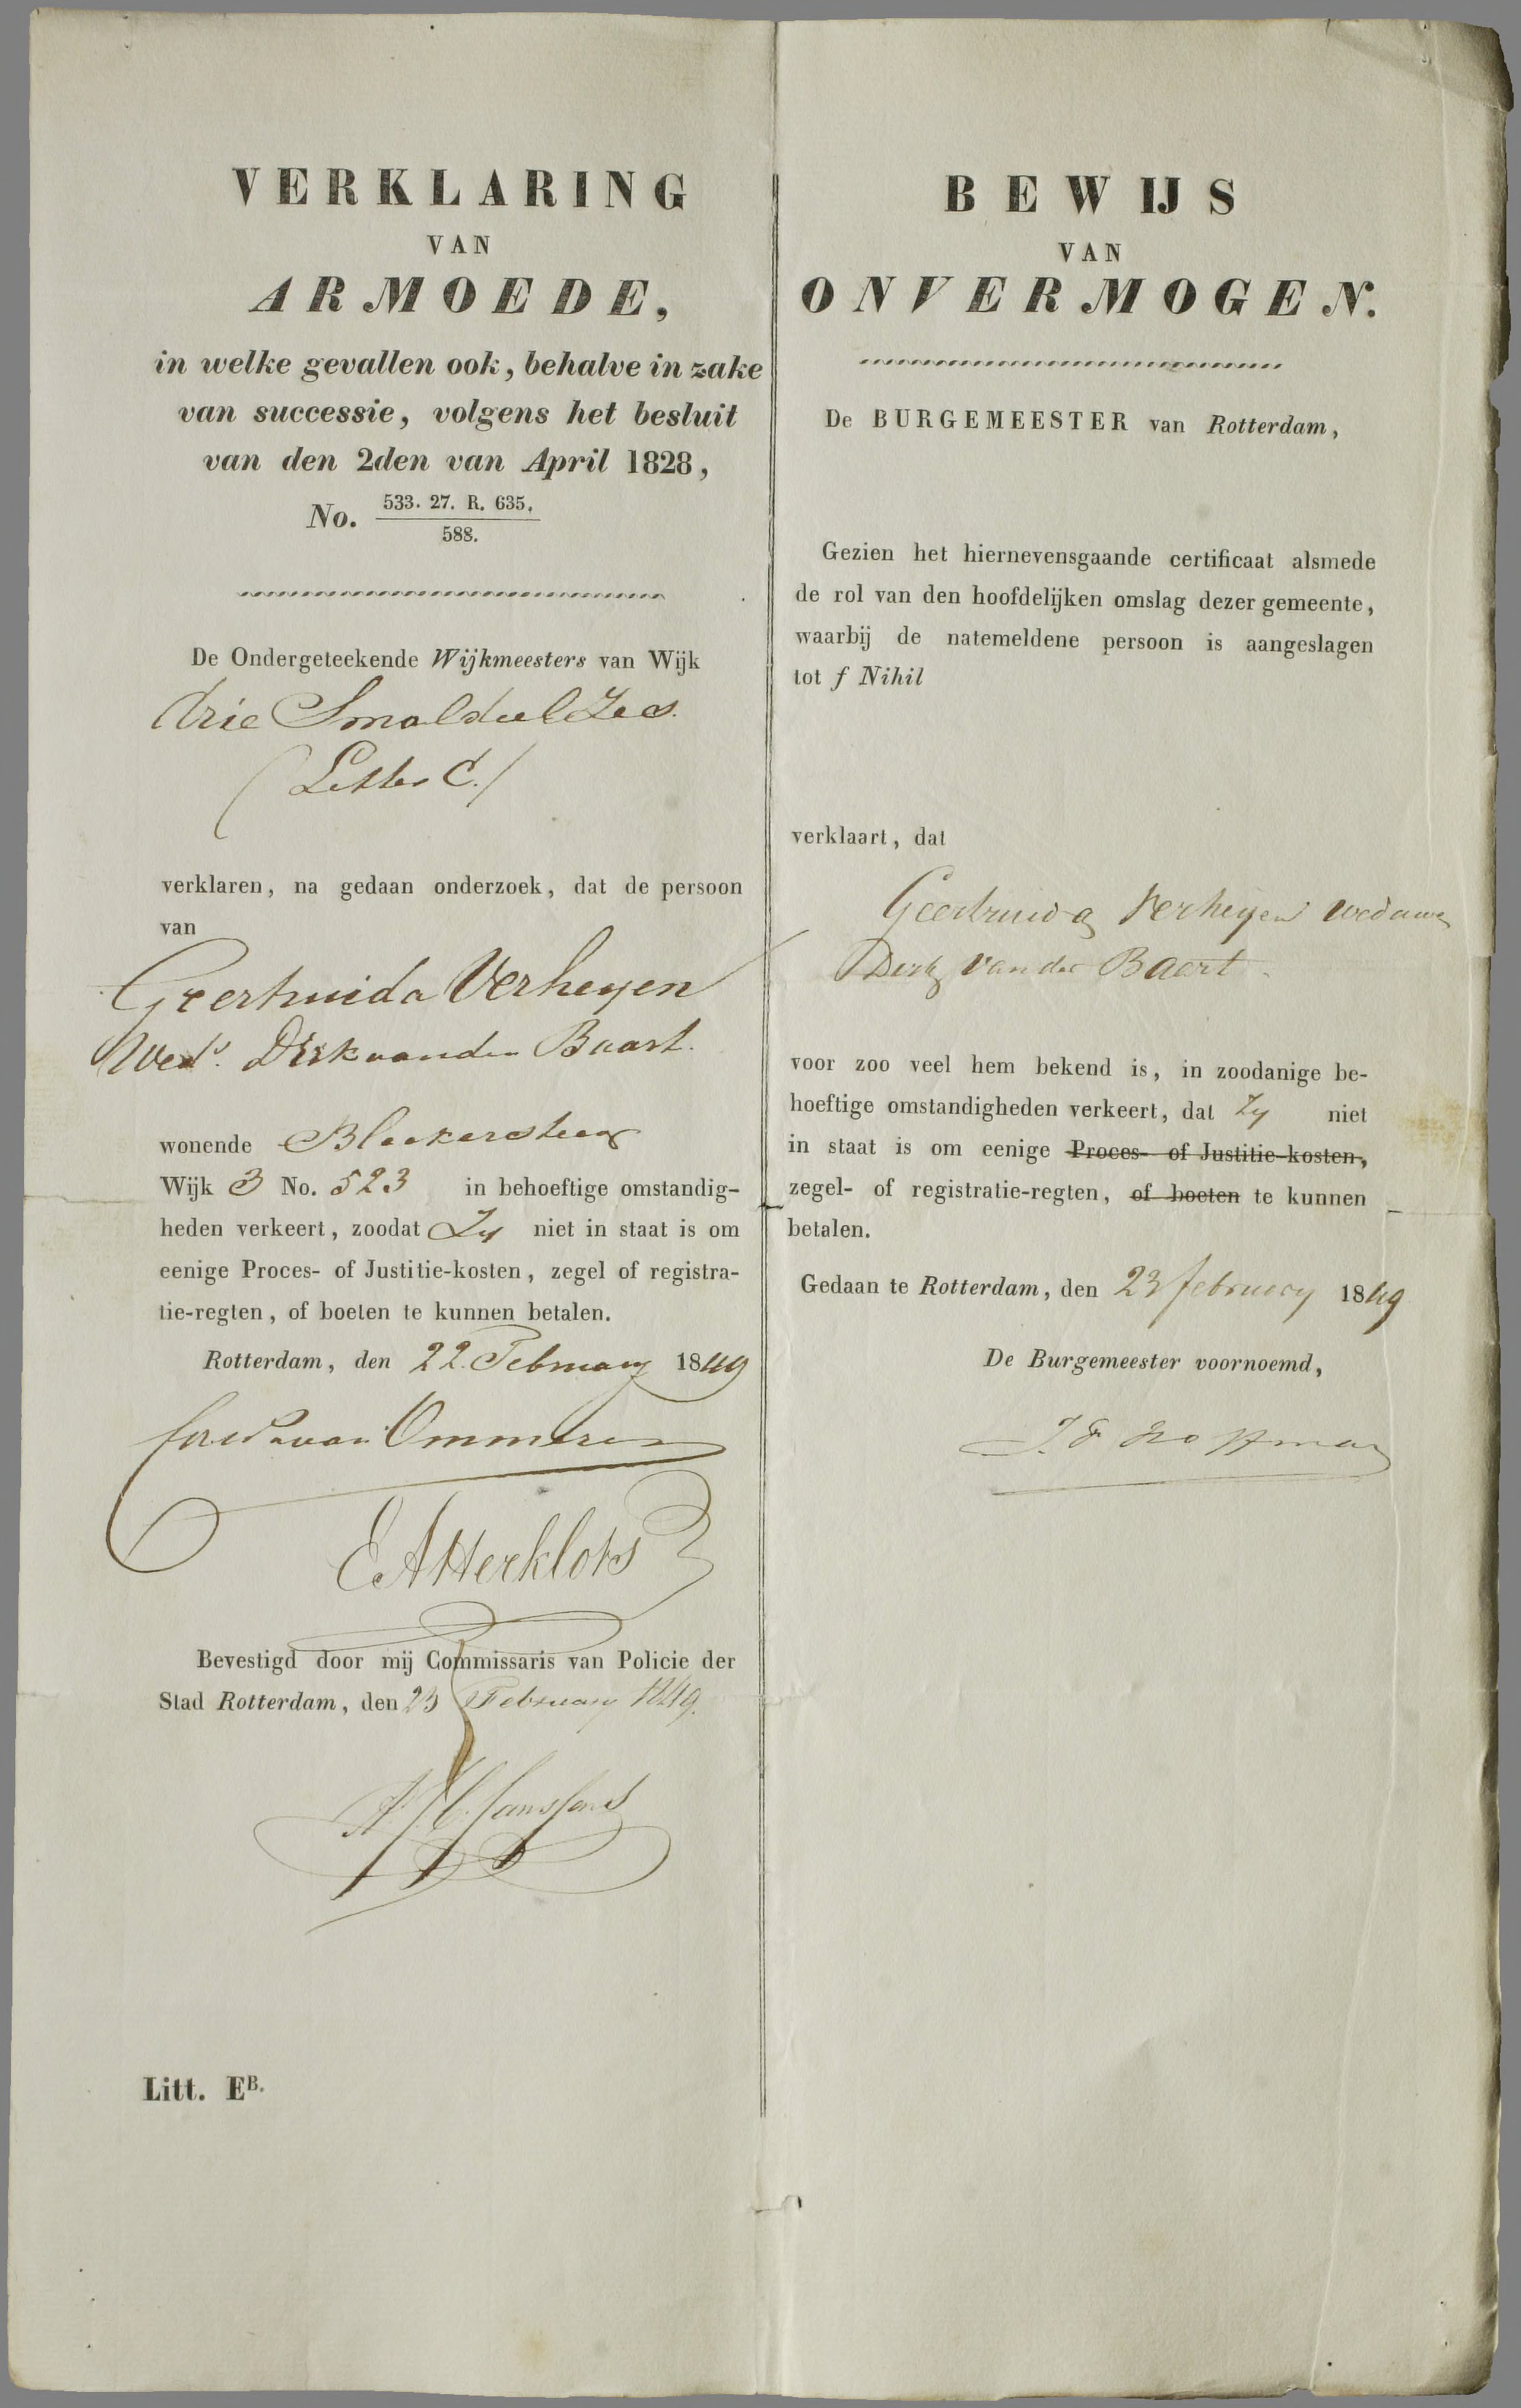 VERKLARING
VAN
ARMOEDE,
in welke gevallen ook, behalve in zake
van successie, volgens het besluit
van den 2den van April 1828,
No. 533. 27. R. 635.
588.
De Ondergeteekende Wijkmeesters van Wijk
drie Smaldeel Zes.
(Letter C.)
verklaren, na gedaan onderzoek, dat de persoon
van
Geertruida Verheyen
Wede. Dirk van den Baart.
wonende Bleekersteeg
Wijk 3 No. 523 in behoeftige omstandig-
heden verkeert, zoodat Zy niet in staat is om
eenige Proces- of Justitie-kosten, zegel of registra-
tie-regten, of boeten te kunnen betalen.
Rotterdam, den 22. February 1849
van Ommeren
E A Herklots
Bevestigd door mij Commissaris van Policie der
Stad Rotterdam, den 23 February 1849.
Litt. EB.
BEWIJS
VAN
ONVERMOGEN.
De BURGEMEESTER van Rotterdam,
Gezien het hiernevensgaande certificaat alsmede
de rol van den hoofdelijken omslag dezer gemeente,
waarbij de natemeldene persoon is aangeslagen
tot f Nihil
verklaart, dat
Geertruida Verheyen weduwe
Dirk van der Baart.
voor zoo veel hem bekend is, in zoodanige be-
hoeftige omstandigheden verkeert, dat Zy niet
in staat is om eenige Proces- of Justitie-kosten,
zegel- of registratie-regten, of boeten te kunnen
betalen.
Gedaan te Rotterdam, den 23 february 1849
De Burgemeester voornoemd,
J. F. Hoffman